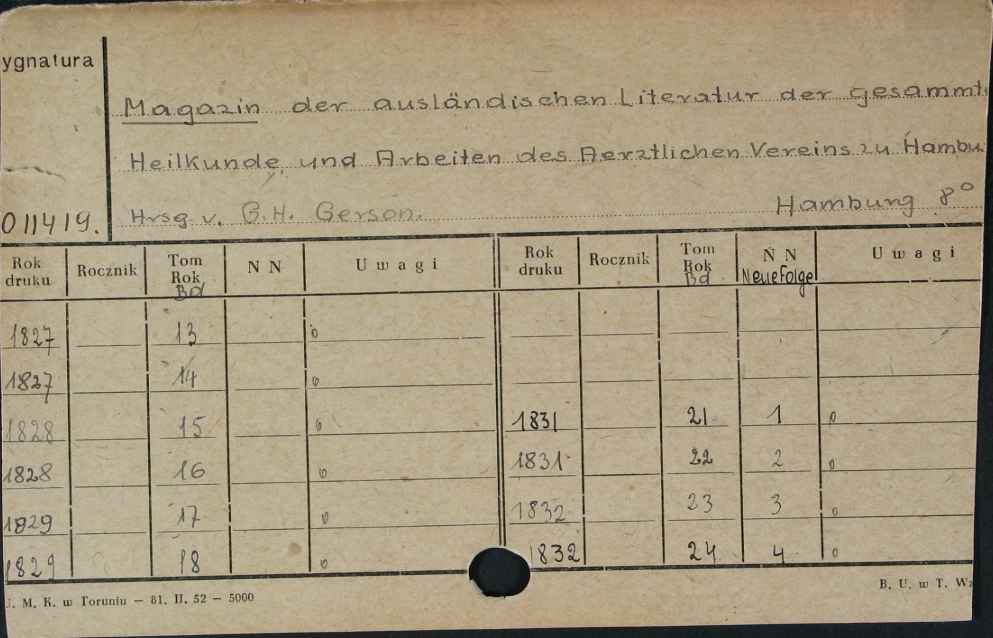 ygnatura
Magazin der ausländischen Literatur der gesammt
Heilkunde, und Arbeiten des Aerztlichen Vereins zu Hambu
011419. Hrsg. v. G.H. Gerson. Hamburg 8°
Rok druku Rocznik Tom Rok Bd N N Uwagi Rok druku Rocznik Tom Rok Bd N N Neue Folge Uwagi
1827 13 o
1827 14 o
1828 15 o 1831 21 1 o
1828 16 o 1831 22 2 o
1829 17 o 1832 23 3 o
1829 18 o 1832 24 4 o
J. M. K. w Toruniu — 81. II. 52 — 5000 B. U. w T. Wz